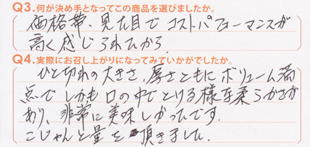 Q3.何が決め手となってこの商品を選びましたか。
価格帯、見た目でコストパフォーマンスが
高く感じられたから
Q4.実際にお召し上がりになってみていかがでしたか。
ひと切れの大きさ、厚さともにボリューム満
点でしかも口の中でとける様な柔らかさが
あり、非常に美味しかったです。
こじゃんと量を頂きました。